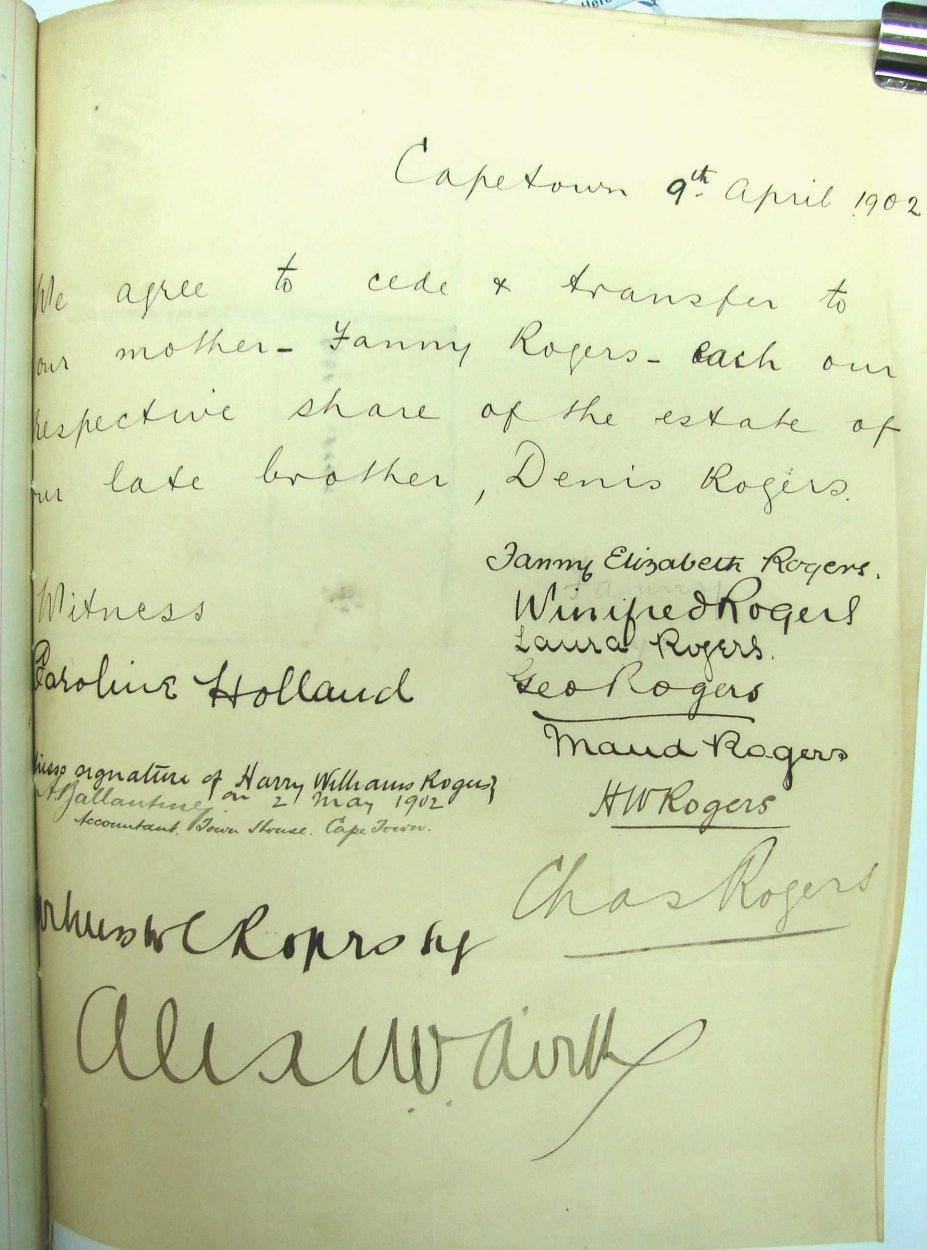 Capetown 9th April 1902
We agree to cede & transfer to
our mother - Fanny Rogers - each our
respective share of the estate of
our late brother, Denis Rogers.
Fanny Elizabeth Rogers.
Winifred Rogers
Laura Rogers.
Geo Rogers
Maud Rogers
H W Rogers
Chas Rogers
Witness
Caroline Holland
signature of Harry Williams Rogers
A Ballantine on 2 May 1902
Accountant. Town House. Cape Town.
Witness to C Rogers sig
Alex W